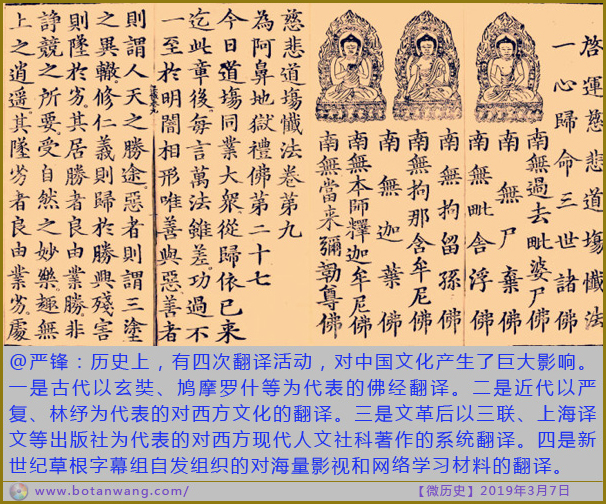 啓運慈悲道塲懺法
一心歸命三世諸佛
南無過去毗婆尸佛
南無尸棄佛
南無毗舍浮佛
南無拘留孫佛
南無拘那含牟尼佛
南無迦葉佛
南無本師釋迦牟尼佛
南無當来彌勒尊佛
慈悲道塲懺法卷第九
為阿鼻地獄禮佛第二十七
今日道塲同業大衆從歸依已来
迄此章後每言萬法雖差功過不
一至於明闇相形唯善與惡善者
則謂人天之勝途惡者則謂三塗
之異轍修仁義則歸於勝興殘害
則墜於劣其居勝者良由業勝非
諍競之所要受自然之妙樂趣無
上之逍遥其墜劣者良由業劣處
@严锋：历史上，有四次翻译活动，对中国文化产生了巨大影响。
一是古代以玄奘、鸠摩罗什等为代表的佛经翻译。二是近代以严
复、林纾为代表的对西方文化的翻译。三是文革后以三联、上海译
文等出版社为代表的对西方现代人文社科著作的系统翻译。四是新
世纪草根字幕组自发组织的对海量影视和网络学习材料的翻译。
www.botanwang.com/
【微历史】2019年3月7日